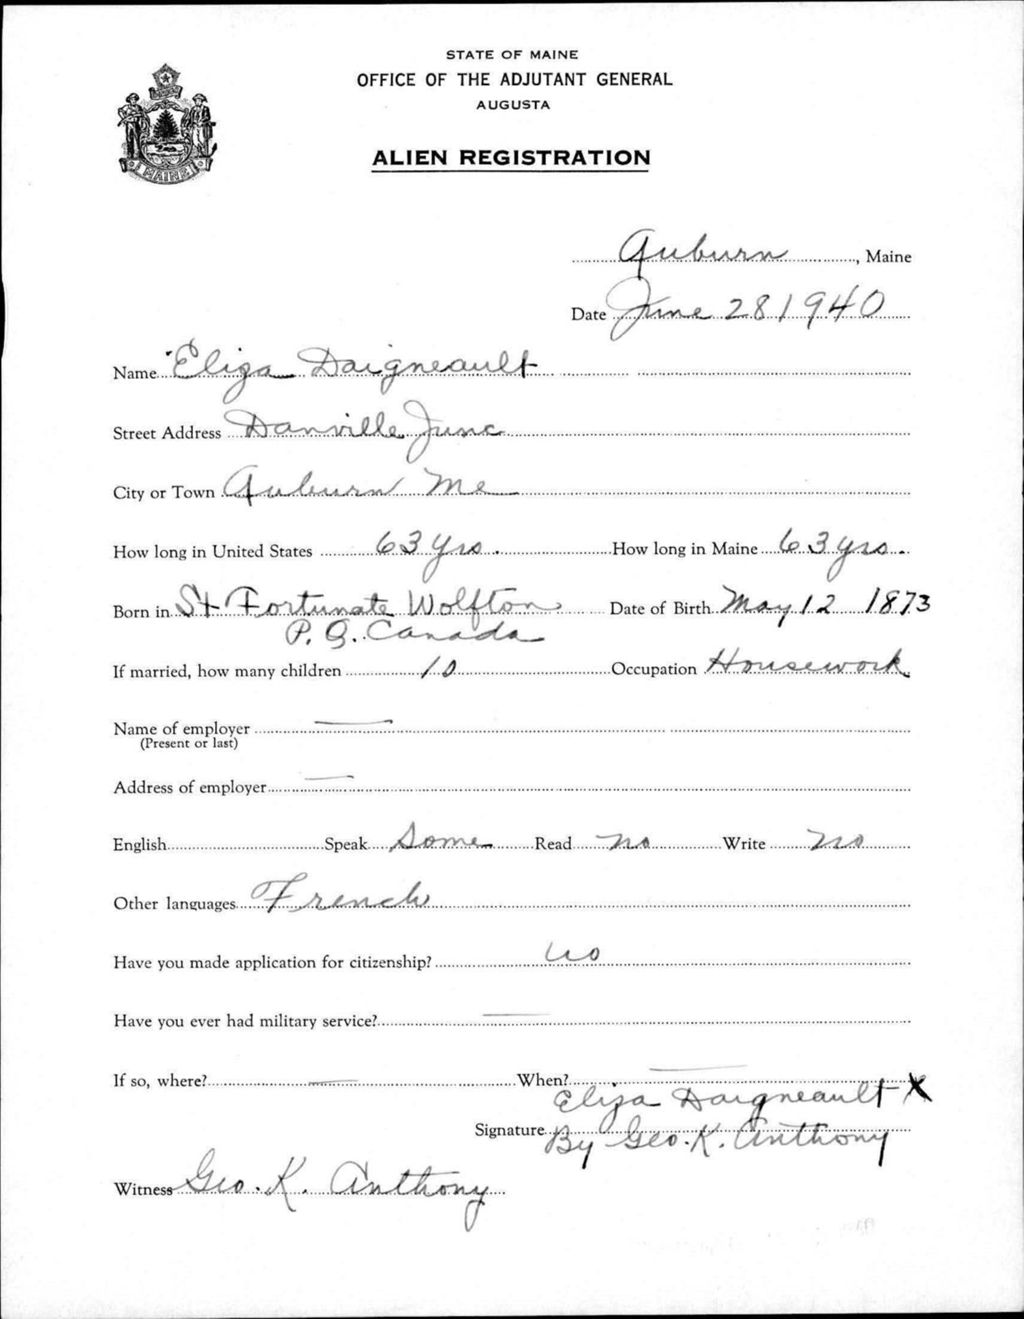 STATE OF MAINE
OFFICE OF THE ADJUTANT GENERAL
AUGUSTA
ALIEN REGISTRATION
MAINE
Auburn, Maine
Date June 28 1940
Name Eliza Daigneault
Street Address Danville Junc
City or Town Auburn Me
How long in United States 63 yrs. How long in Maine 63 yrs.
Born in St Fortunate Wolfton Date of Birth May 12 1873
P. Q. Canada
If married, how many children 10 Occupation Housework
Name of employer —
(Present or last)
Address of employer —
English Speak Some Read no Write no
Other languages French
Have you made application for citizenship? no
Have you ever had military service? —
If so, where? — When? —
Eliza Daigneault X
Signature By Geo. K. Anthony
Witness Geo. K. Anthony